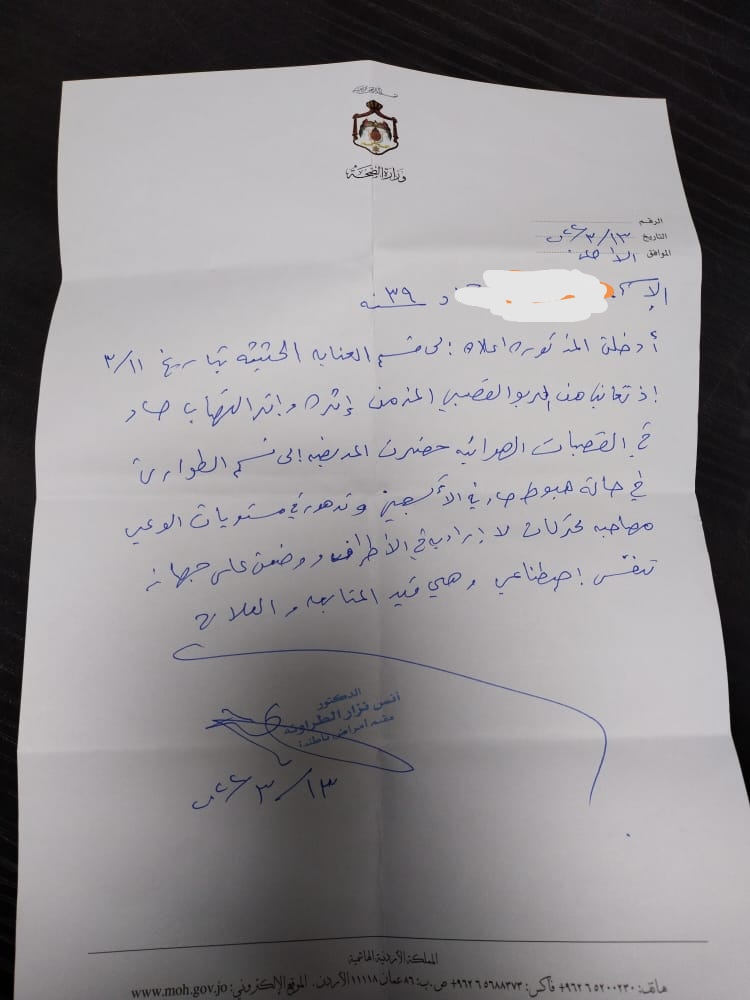 وزارة الصحة
الرقم
التاريخ ١٣/٣/
الموافق الأحد
٣٩ سنه
أدخلت المذكوره اعلاه إلى قسم العناية الحثيثه بتاريخ ٣/١١
إذ تعاني من الربو القصبي المزمن إثره واثر التهاب حاد
في القصبات الهوائيه حضرت المريضه إلى قسم الطوارئ
في حالة هبوط حاد في الأكسجين وتدهور في مستويات الوعي
مصاحبه لحركات لا إراديه في الأطراف ووضعت على جهاز
تنفس إصطناعي وهي قيد المتابعه والعلاج
الدكتور
أنس نزار الطراونه
مقيم أمراض باطنة
١٣/٣/
المملكة الأردنية الهاشمية
هاتف: ٥٢٠٠٢٣٠ ٦ ٩٦٢+ فاكس: ٥٦٨٨٣٧٣ ٦ ٩٦٢+ ص.ب: ٨٦ عمان ١١١١٨ الأردن. الموقع الإلكتروني: www.moh.gov.jo